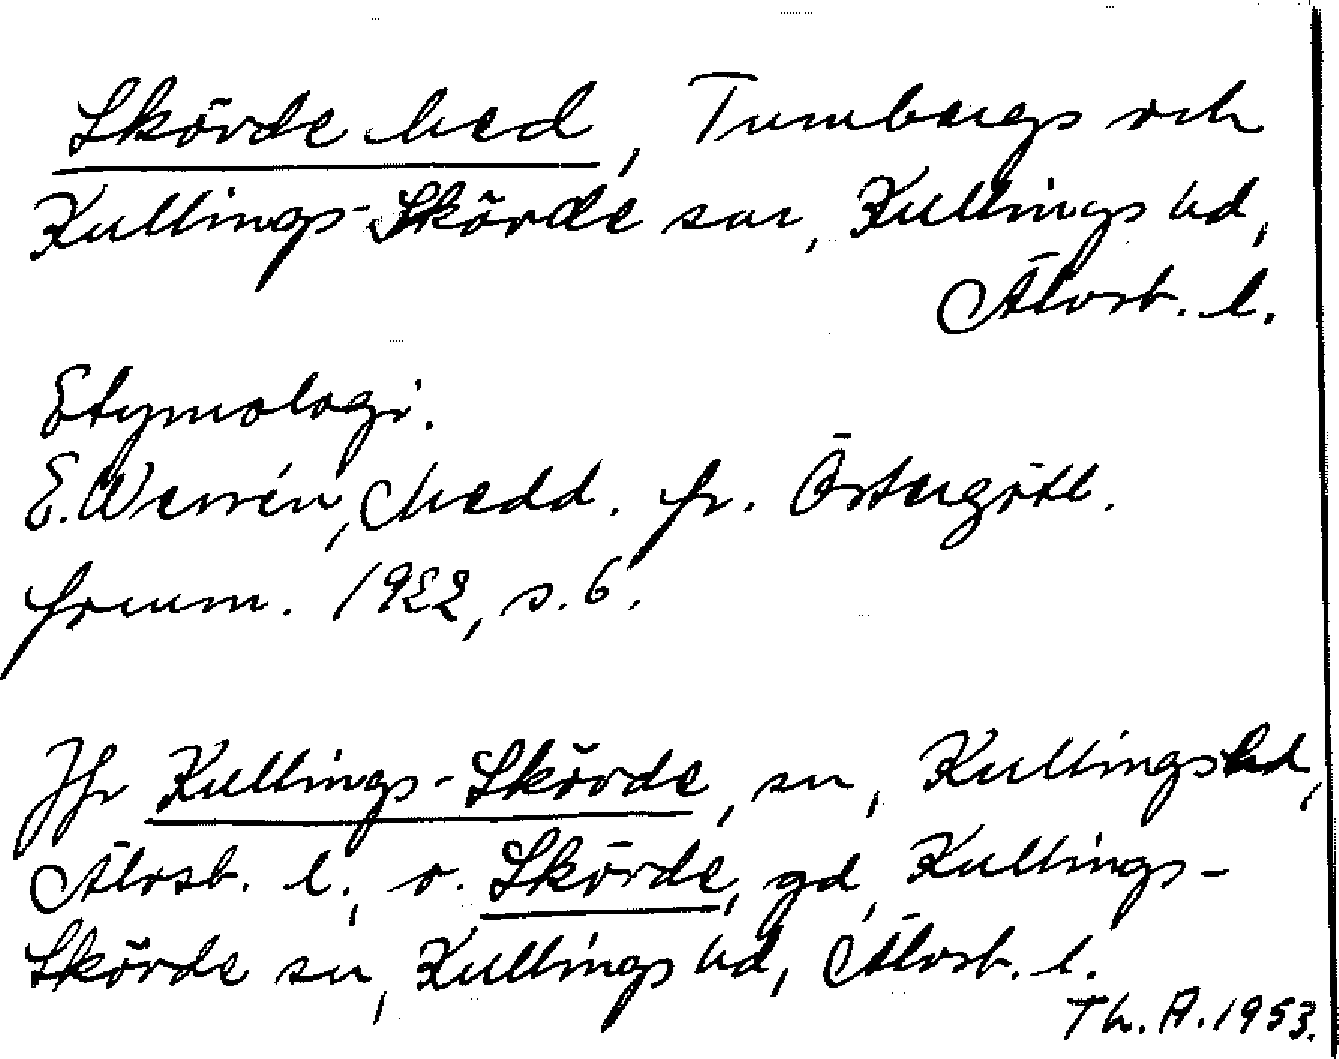 Skörde hed, Tumbergs och
Kullings-Skörde snr, Kullings hd,
Älvsb. l.
Etymologi.
E. Wessén, Medd. fr. Östergötl.
fornm. 1922, s. 6.
Jfr Kullings-Skövde, sn, Kullings hd,
Älvsb. l., o. Skörde, gd, Kullings-
Skörde sn, Kullings hd, Älvsb. l.
Th. A. 1953.